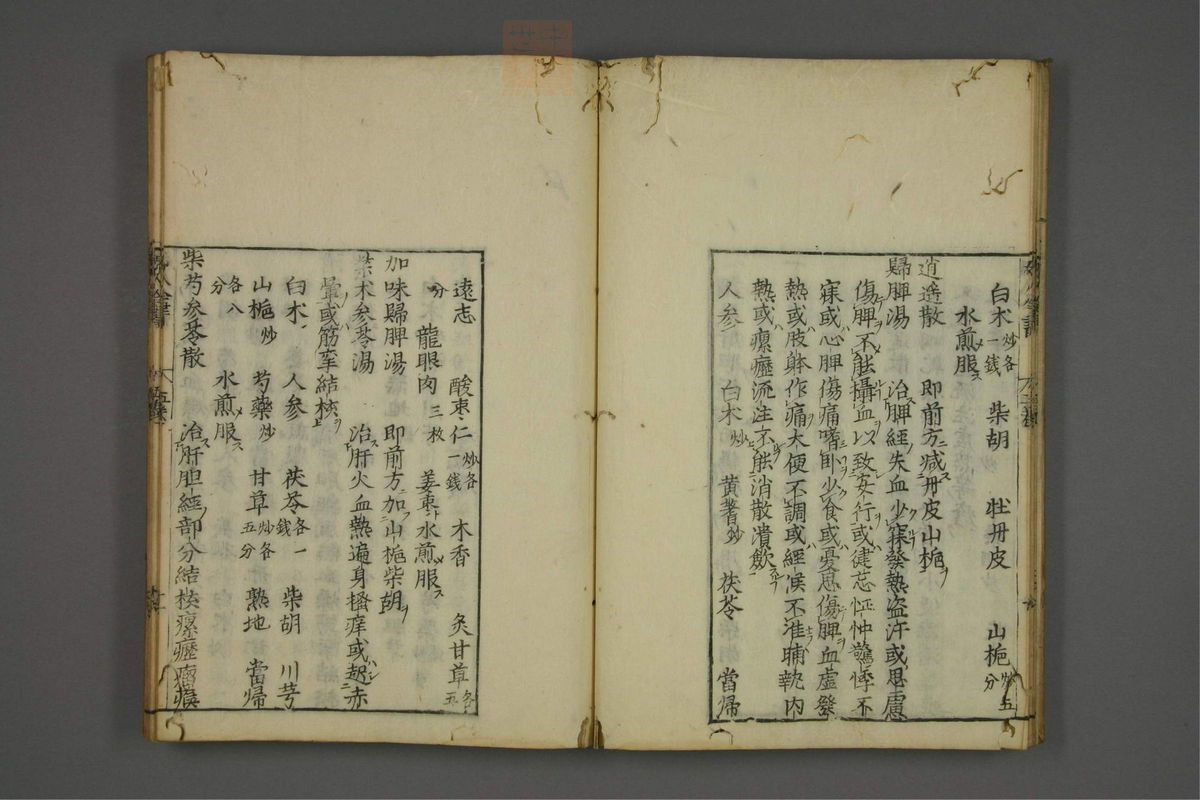 白朮炒各一錢 柴胡 牡丹皮 山梔炒五分
水煎服ス
逍遙散 即前方ニ減ス丹皮山梔ヲ
歸脾湯 治脾經失血少寐發熱盗汗或思慮
傷脾不能攝血以致妄行或徤忘怔忡驚悸不
寐或心脾傷痛嗜卧少食或憂思傷脾血虛發
熱或肢躰作痛大便不調或經候不准晡熱内
熱或瘰癧流注不能消散潰歛
人参 白朮炒 黄蓍炒 茯苓 當帰
遠志 酸棗仁炒各一錢 木香 炙甘草各五
分 龍眼肉三枚 姜棗水煎服ス
加味歸脾湯 即前方加山梔柴胡ヲ
柴朮参苓湯 治肝火血熱遍身搔痒或起赤
暈或筋挛結核
白朮 人参 茯苓各一錢 柴胡 川芎
山梔炒 芍藥炒 甘草炒各五分 熟地 當帰
各八分 水煎服ス
柴芍参苓散 治肝胆經部分結核瘰癧